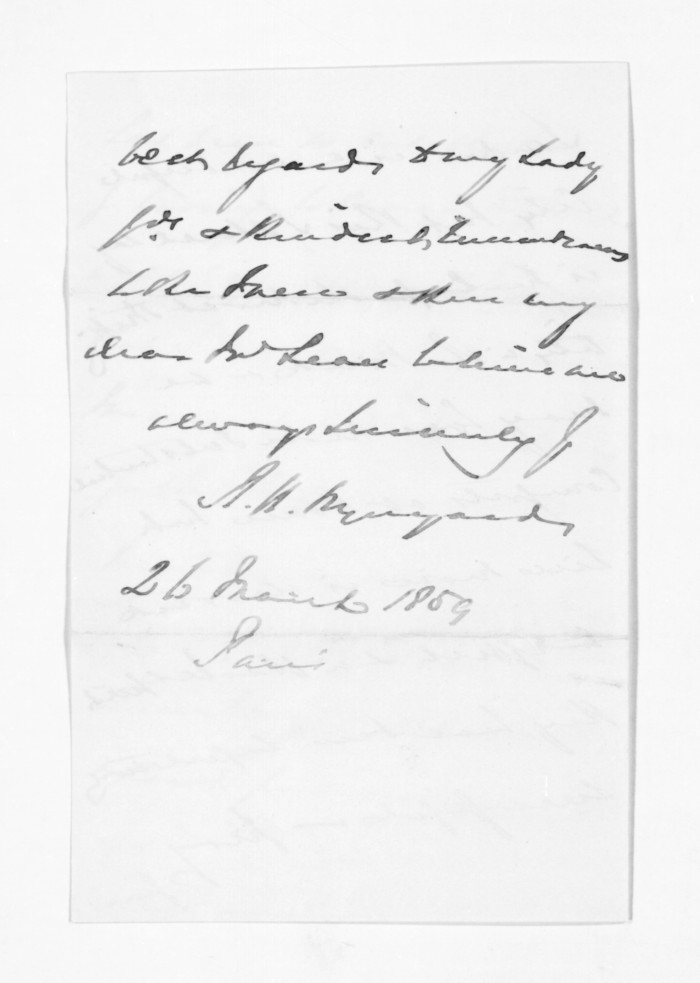 best regards to my Lady
& Kindest remembrances
to the & then my
dear McLean believe me
always sincerely
R. H. Wynyard
26 March 1859
Paris